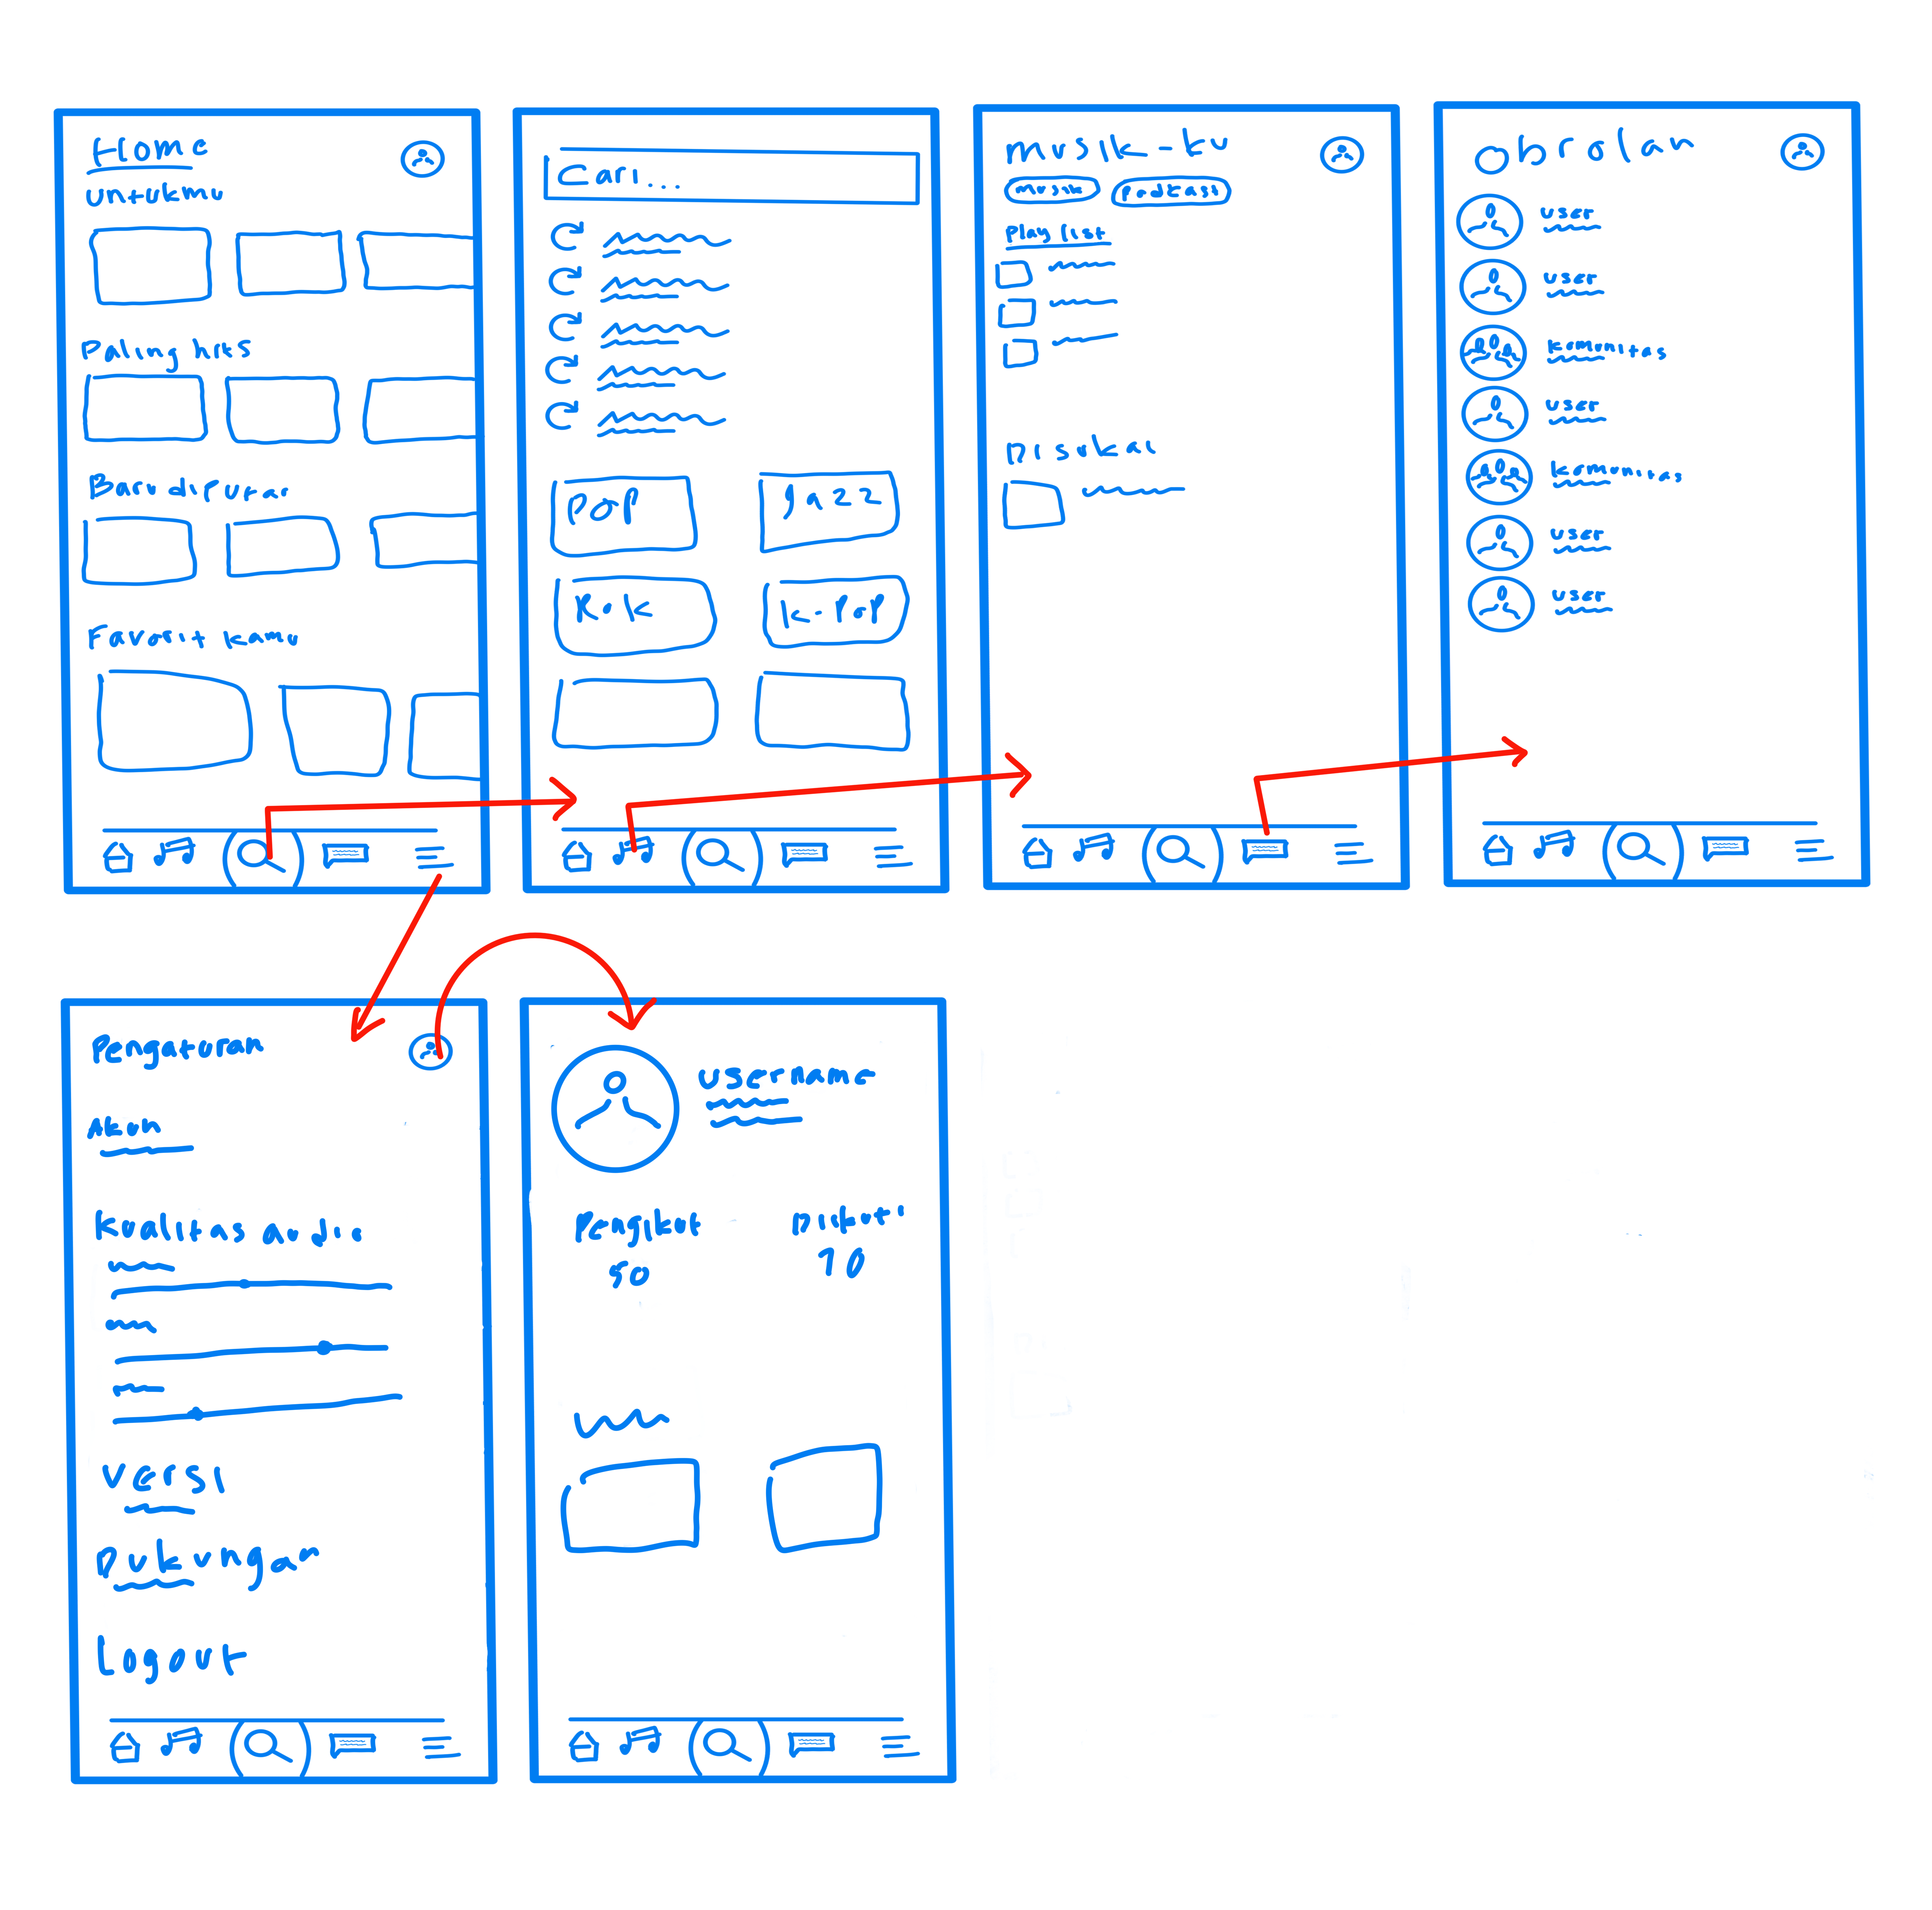 Home
Untukmu
Paling hits
Baru diputar
Favorit kamu
Cari...
Pop
Jazz
Rok
K-Pop
Musik-ku
musik
Podcast
Playlist
Disukai
Obrolan
user
user
komunitas
user
komunitas
user
user
Pengaturan
Akun
Kualitas audio
Versi
Dukungan
Logout
username
Pengikut
Diikuti
50
10